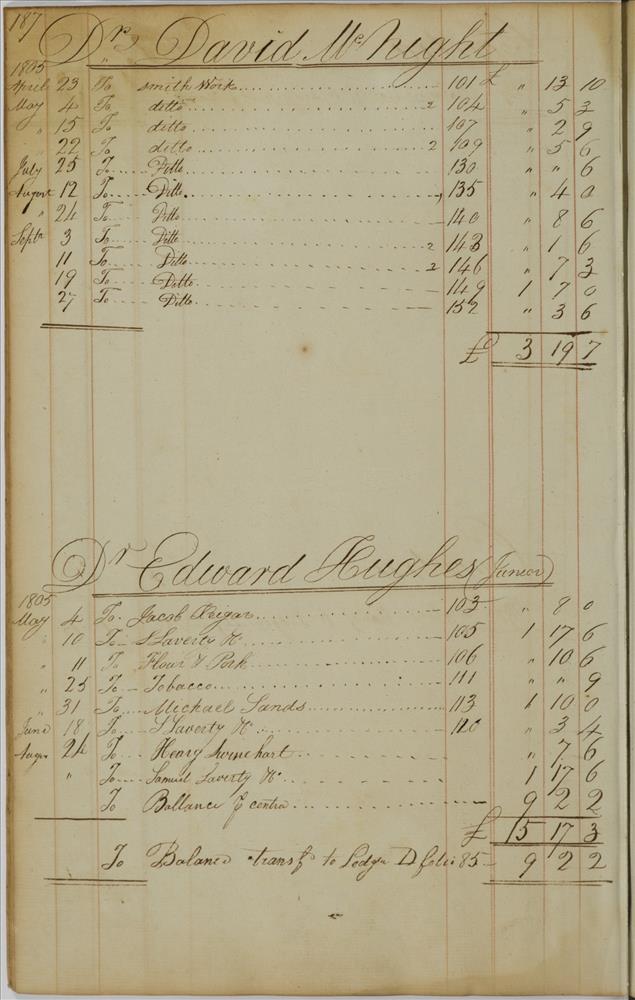 187
Dr. David McKnight
1805
April 23 To smith Work 101 £ " 13 10
May 4 To ditto 2 104 " 5 3
" 15 To ditto 107 " 2 9
" 22 To ditto 2 109 " 5 6
July 25 To Ditto 130 " " 6
August 12 To Ditto 135 " 4 0
" 24 To Ditto 140 " 8 6
Septr 3 To Ditto 2 143 " 1 6
11 To Ditto 2 146 " 7 3
19 To Ditto 149 1 7 0
27 To Ditto 152 " 3 6
£ 3 19 7
Dr Edward Hughes (Junior)
1805
May 4 To Jacob 103 " 8 0
" 10 To S Laverty 105 1 17 6
" 11 To Flour & Pork 106 " 10 6
" 25 To Tobacco 111 " " 9
" 31 To Michael Sands 113 1 10 0
June 18 To S Laverty 120 " 3 4
Augus 24 To Henry Swinehart " 7 6
" To Samuel Laverty 1 17 6
To Ballance contra 9 2 2
£ 15 17 3
To Balance transfd to Ledger D folio 85 9 2 2